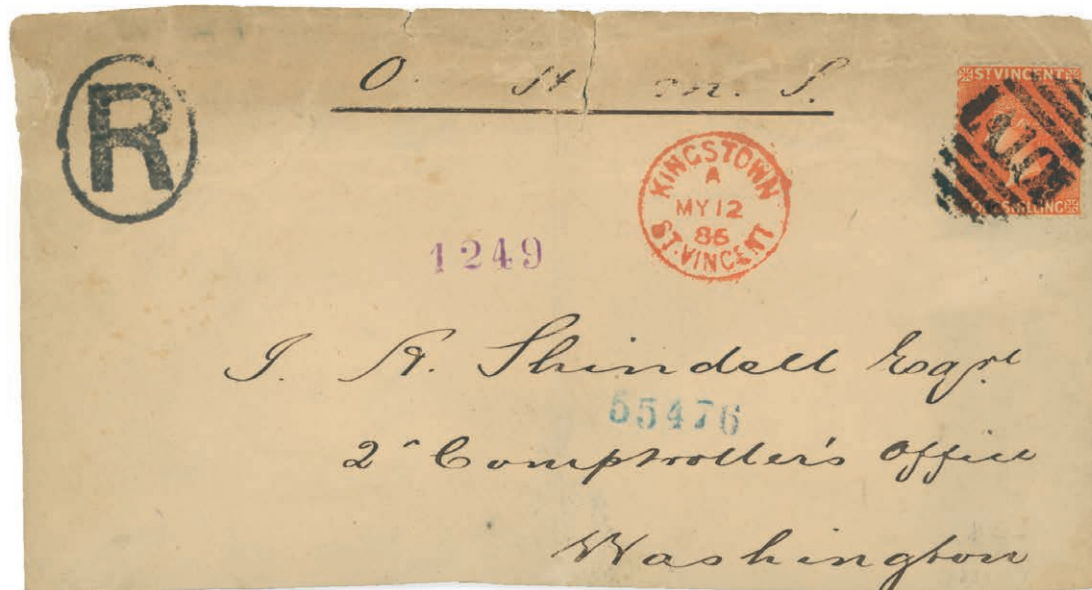 R
O. H. M. S.
ST VINCENT
A10
ONE SHILLING
KINGSTOWN
A
MY 12
86
ST. VINCENT
1249
J. A. Shindell Esqre
55476
2d Comptroller's Office
Washington